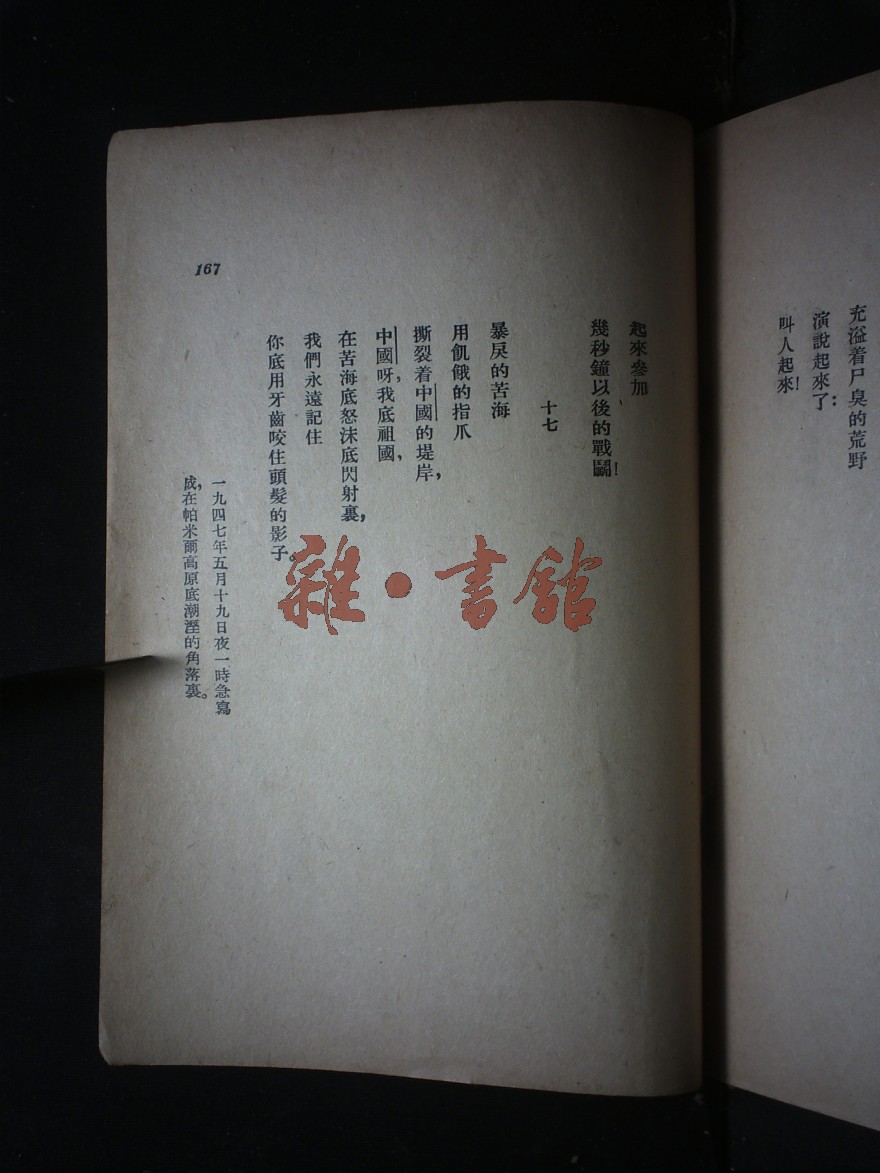 充溢着尸臭的荒野
演說起來了：
叫人起來！
起來參加
幾秒鐘以後的戰鬭！
十七
暴戾的苦海
用飢餓的指爪
撕裂着中國的堤岸，
中國呀，我底祖國，
在苦海底怒沫底閃射裏，
我們永遠記住
你底用牙齒咬住頭髮的影子。
一九四七年五月十九日夜一時急寫
成，在帕米爾高原底潮溼的角落裏。
167
雜·書館